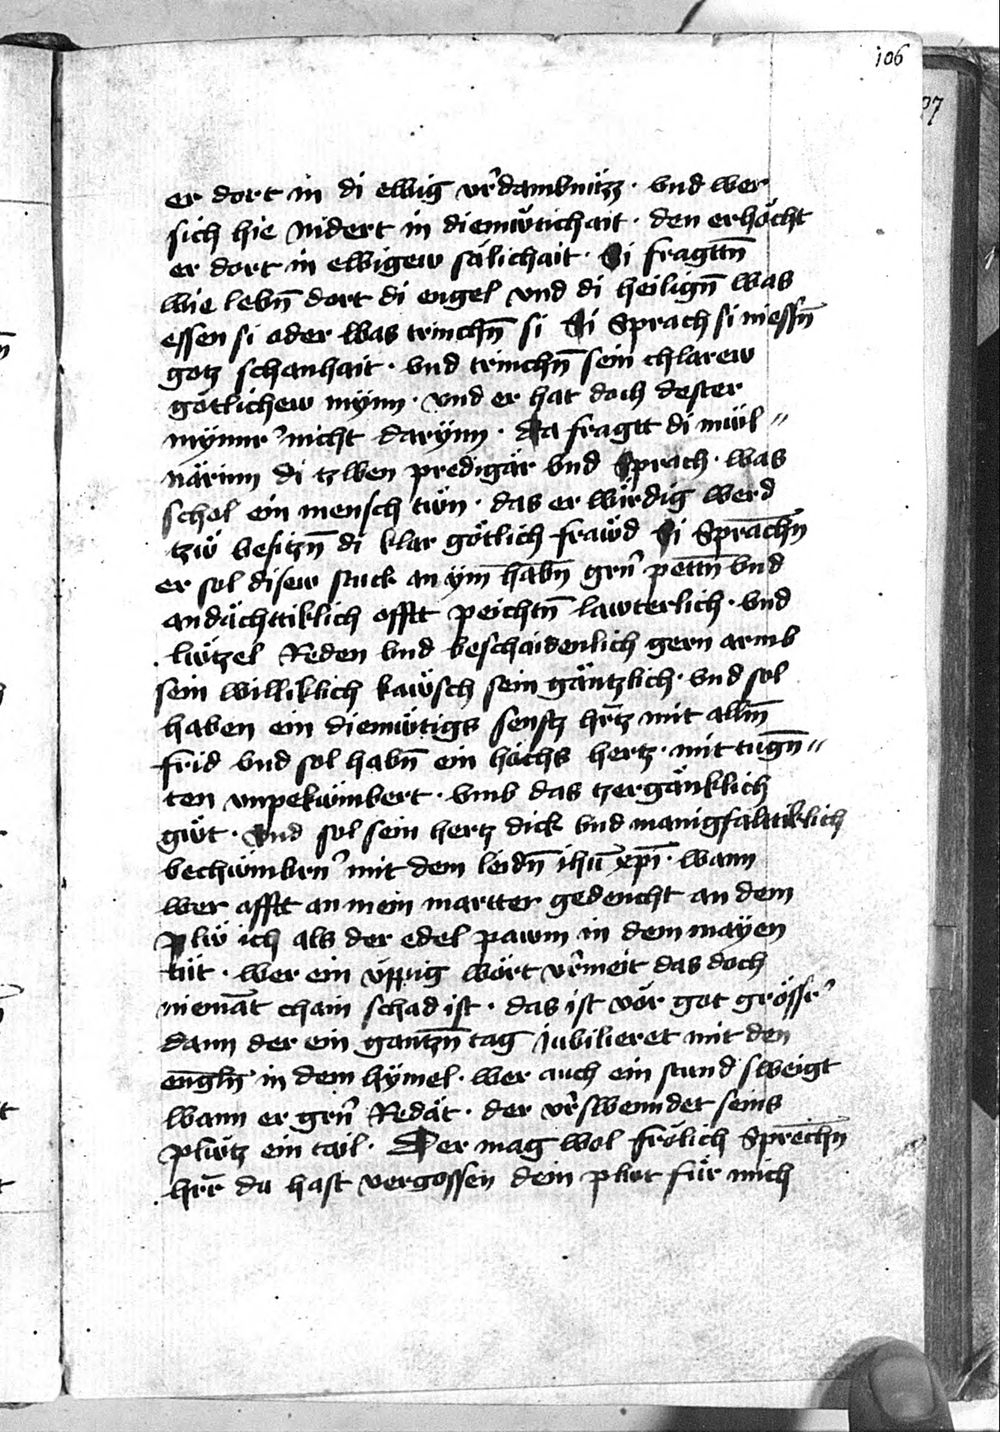 106
07
er dort in di ewig vr̃dambnüzz · vnd wer
sich hie nidert in diemẅtichait · den erhöcht
er dort in ewigew sälichait · Si fragttn̄
wie lebn̄ dort di engel vnd di heilign̄ was
essen si oder was trinchn̄ si Si Sprach si niessn̄
gotz schanhait · vnd trinchn̄ sein chlarew
götlichew mÿnn · vnd er hat doch dester
mÿnnr̾ nicht darÿnn · Da fragtt di mẅl〃
närinn di tzwen predigär vnd Sprach · was
schol ein mensch tẅn · das er wirdig werd
tzẅ besitzn̄ di klar götlich frawd̈ Si Sprachn̄
er sol disew stuck an ÿm̄ habn̄ grn̾ pettn̄ vnd
andächttiklich offtt peichtn̄ lawterlich · vnd
lẅtzel Reden vnd beschaidenlich gern armb
sein williklich kaẅsch sein gäntzlich · vnd sol
haben ein diemẅtigs senftz hr̄tz mit allm̄
frid vnd sol habn̄ ein höchs hertz · mit tugn̄〃
ten vnpekümbert · vmb das tzergänklich
gẅt · Vnd sol sein hertz dick vnd manigfälttiklich
bechümbrn̾ mit dem leidn̄ ihū xp̄i · wann
wer offtt an mein martter gedencht an dem
plẅ ich als der edel pawm in dem mayen
tüt · wer ein üppig wört vr̃meit das doch
niemāt chain schad ist · das ist vör got grössr̾
dann der ein gantzn̄ tag iubilieret mit den
engln̄ in dem hÿmel · wer auch ein stund sweigt
wann er grn̾ Redät · der vr̃swenndet seins
plẅtz ein tail · Der mag wol frölich Sprechn̄
hr̄r du hast vergossen dein plüt für mich